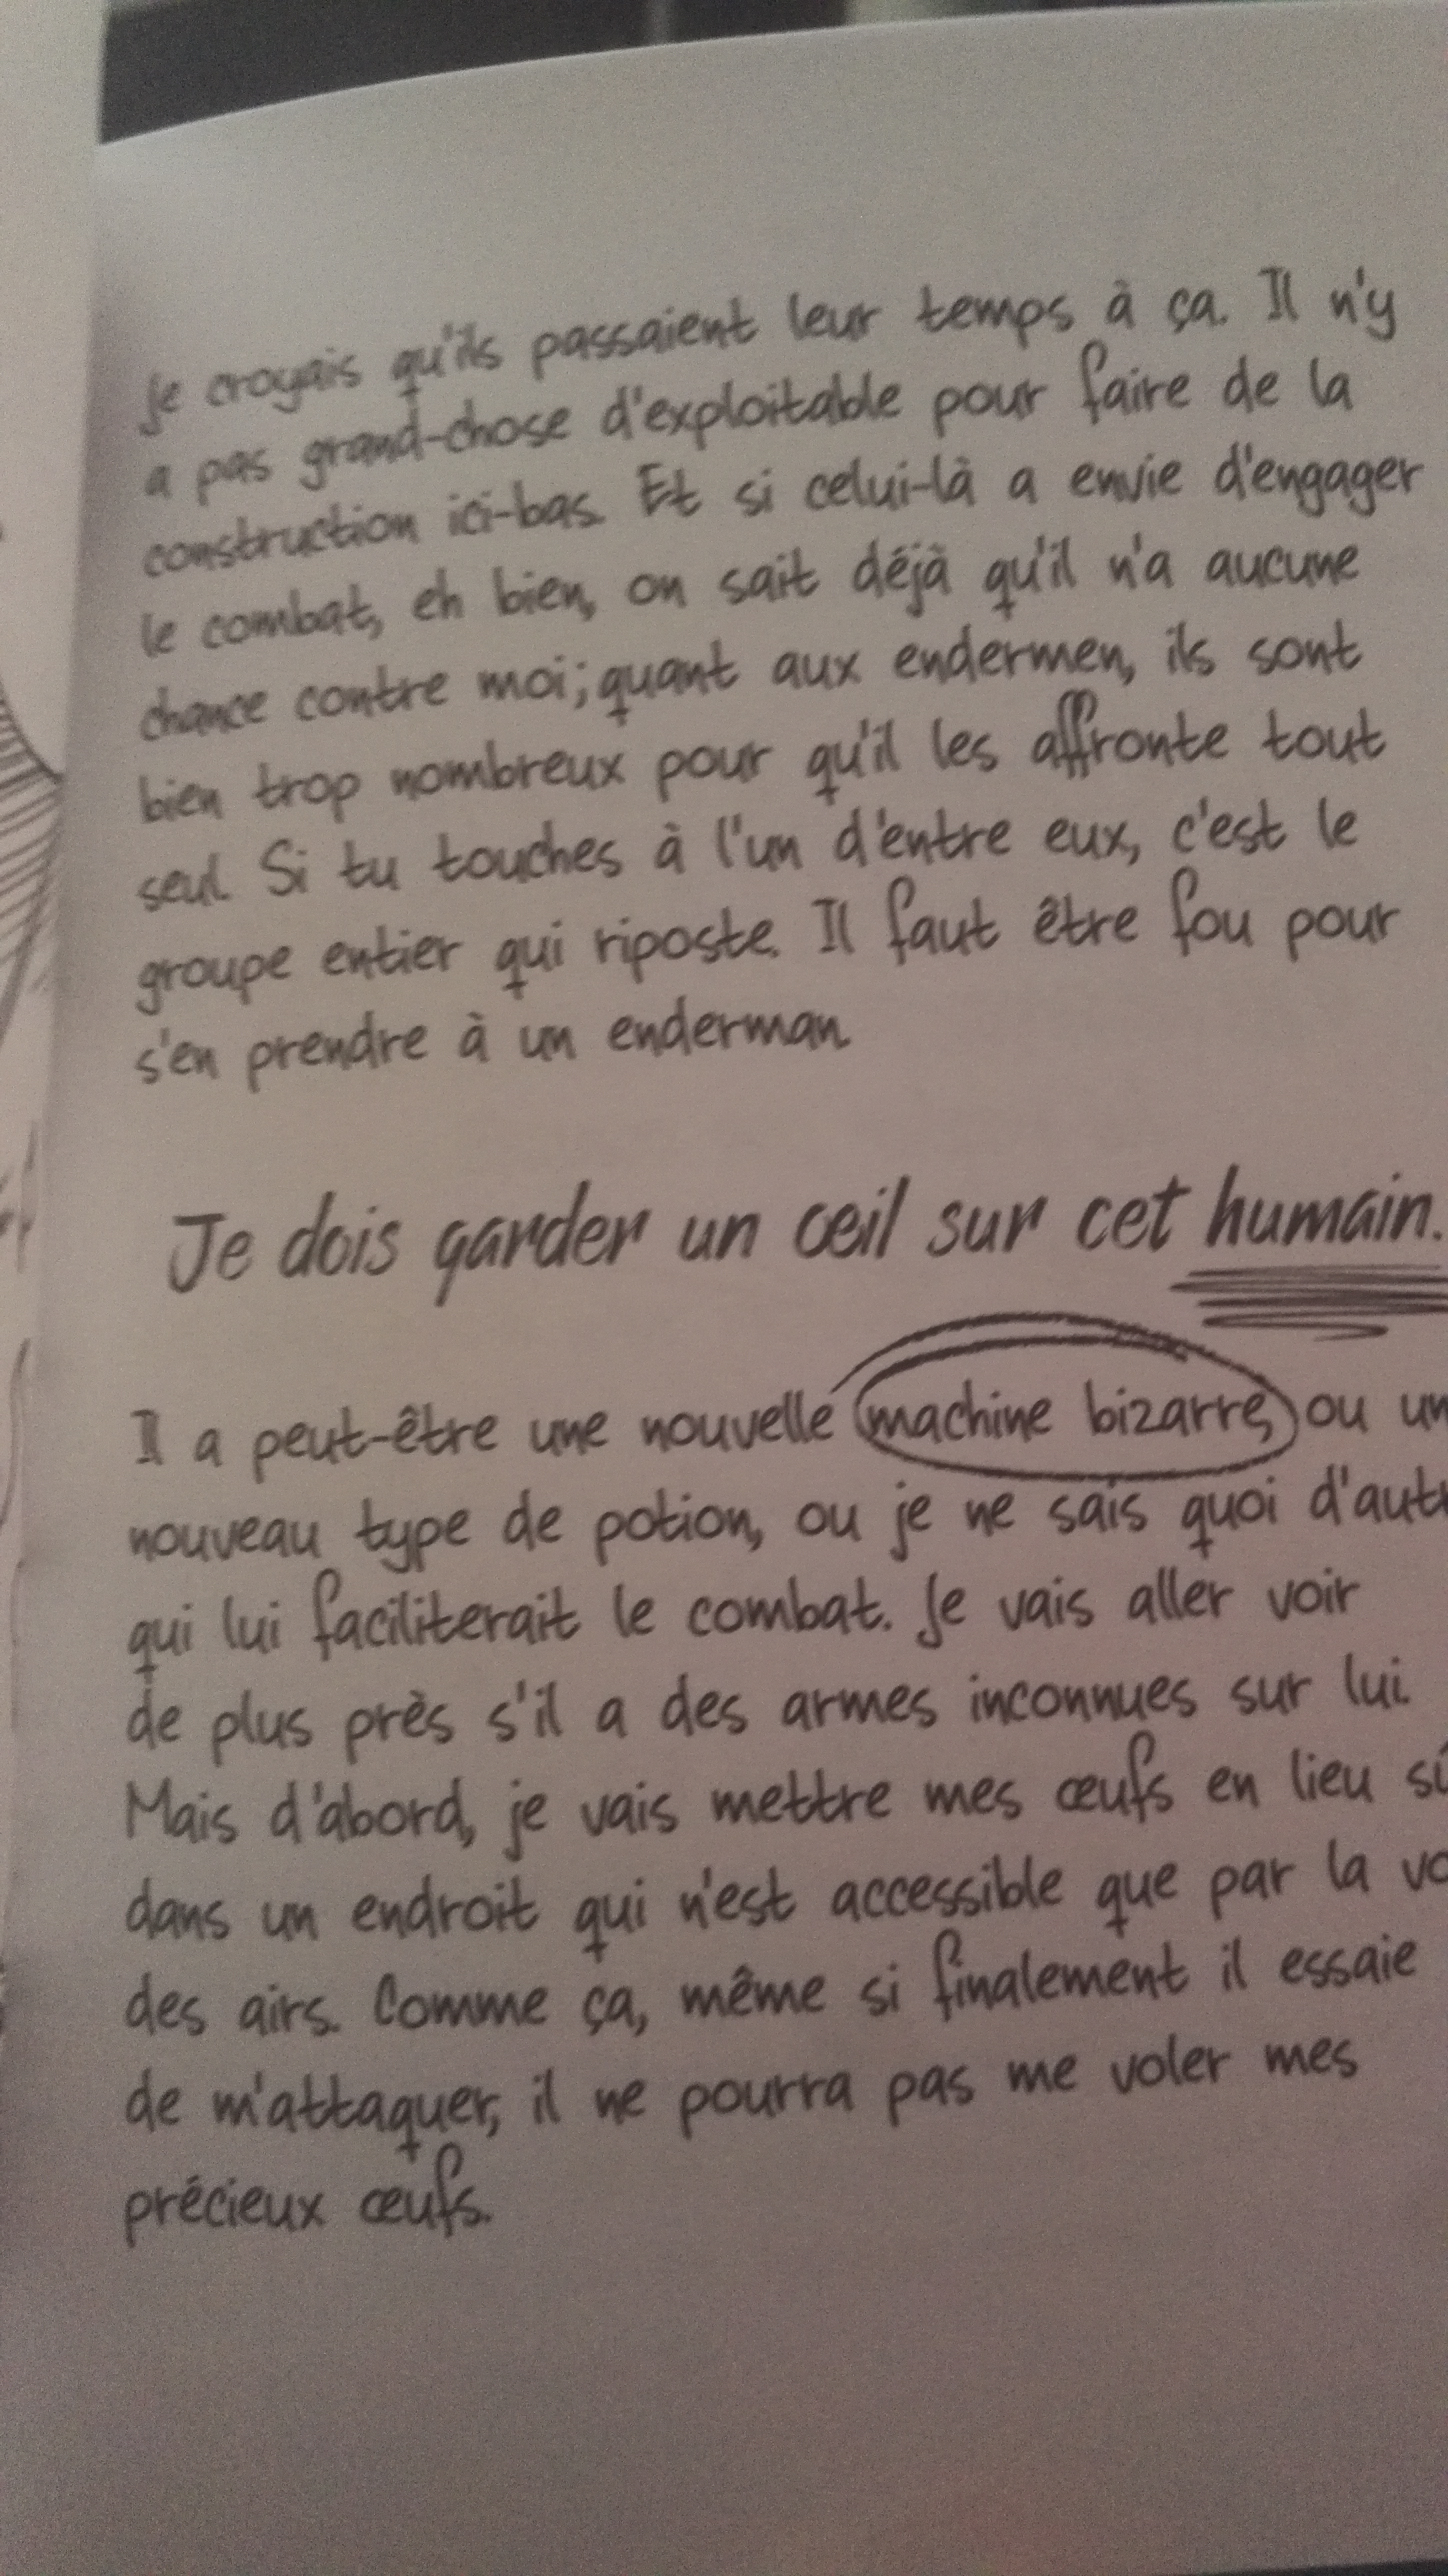 Je croyais qu'ils passaient leur temps à ça. Il n'y
a pas grand-chose d'exploitable pour faire de la
construction ici-bas. Et si celui-là a envie d'engager
le combat, eh bien, on sait déjà qu'il n'a aucune
chance contre moi; quant aux endermen, ils sont
bien trop nombreux pour qu'il les affronte tout
seul. Si tu touches à l'un d'entre eux, c'est le
groupe entier qui riposte. Il faut être fou pour
s'en prendre à un enderman.
Je dois garder un œil sur cet humain.
Il a peut-être une nouvelle machine bizarre, ou
nouveau type de potion, ou je ne sais quoi
qui lui faciliterait le combat. Je vais aller voir
de plus près s'il a des armes inconnues sur lui.
Mais d'abord, je vais mettre mes œufs en lieu
dans un endroit qui n'est accessible que par la
des airs. Comme ça, même si finalement il essaie
de m'attaquer, il ne pourra pas me voler mes
précieux œufs.